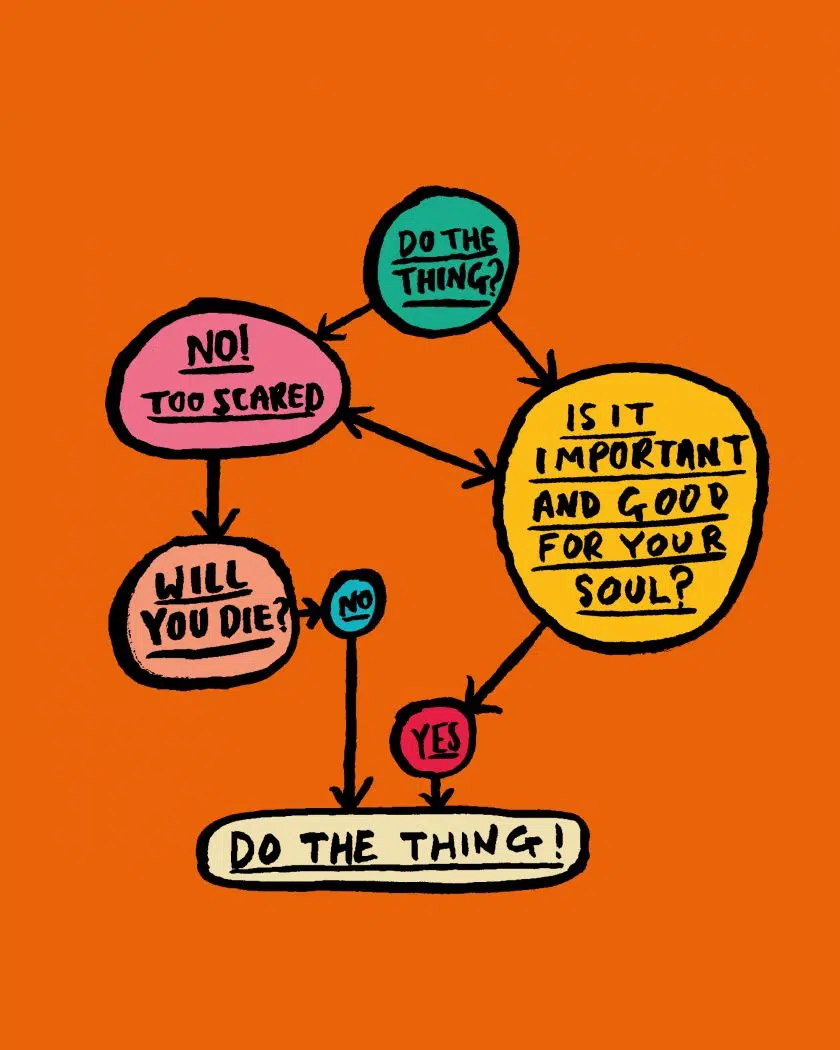 DO THE
THING?
NO!
TOO SCARED
IS IT
IMPORTANT
AND GOOD
FOR YOUR
SOUL?
WILL
YOU DIE?
NO
YES
DO THE THING!